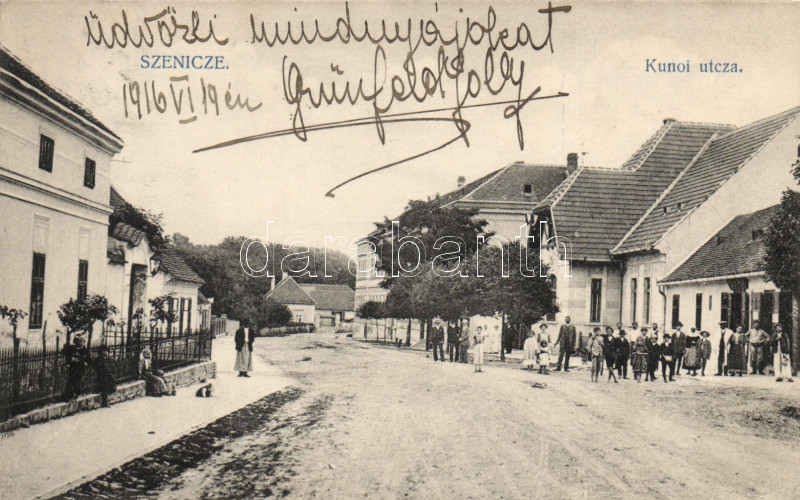 üdvözli mindnyájokat
SZENICZE.
Kunoi utcza.
1916 VI 19én
Grünfeld Jolly
darabanth